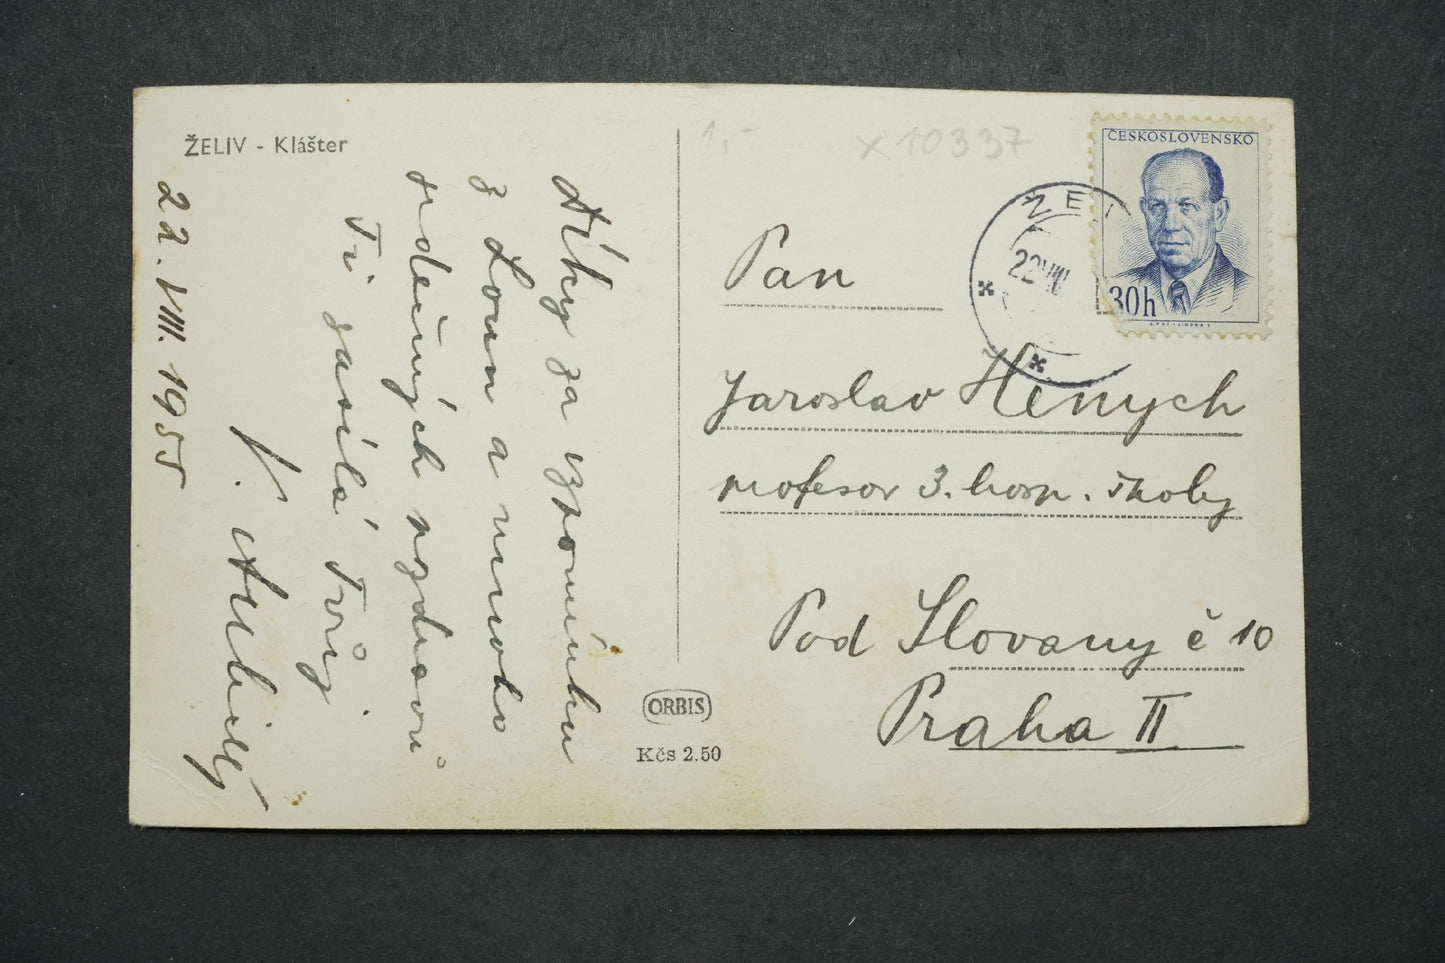 ŽELIV - Klášter
22. VIII. 1955
Díky za vzpomínku
z Loun a mnoho
srdečných pozdravů
Ti zasílá Tvůj
J.
ORBIS
Kčs 2.50
1,-
x 10337
ČESKOSLOVENSKO
30h
ŽEL
22 VIII
Pan
Jaroslav Henych
profesor 3. hosp. školy
Pod Slovany č 10
Praha II